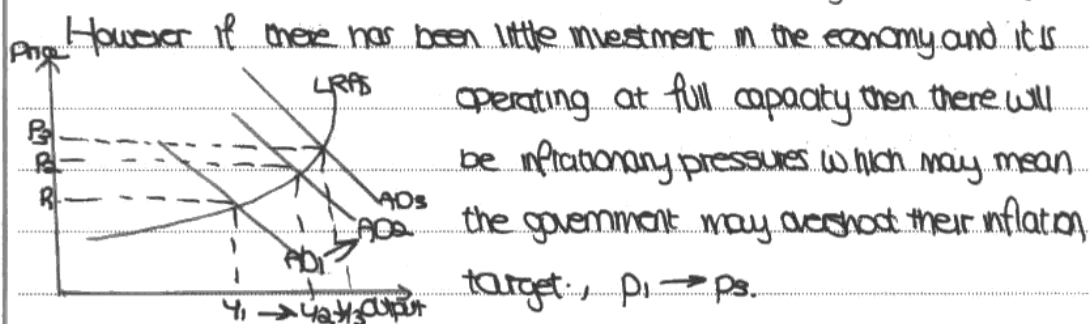 However if there has been little investment in the economy and it is
operating at full capacity then there will
be inflationary pressures which may mean
the government may overshoot their inflation
target., P1 → P3.
Price
LRAS
P3
P2
P1
AD3
AD2
AD1
Y1 → Y2 → Y3 Output